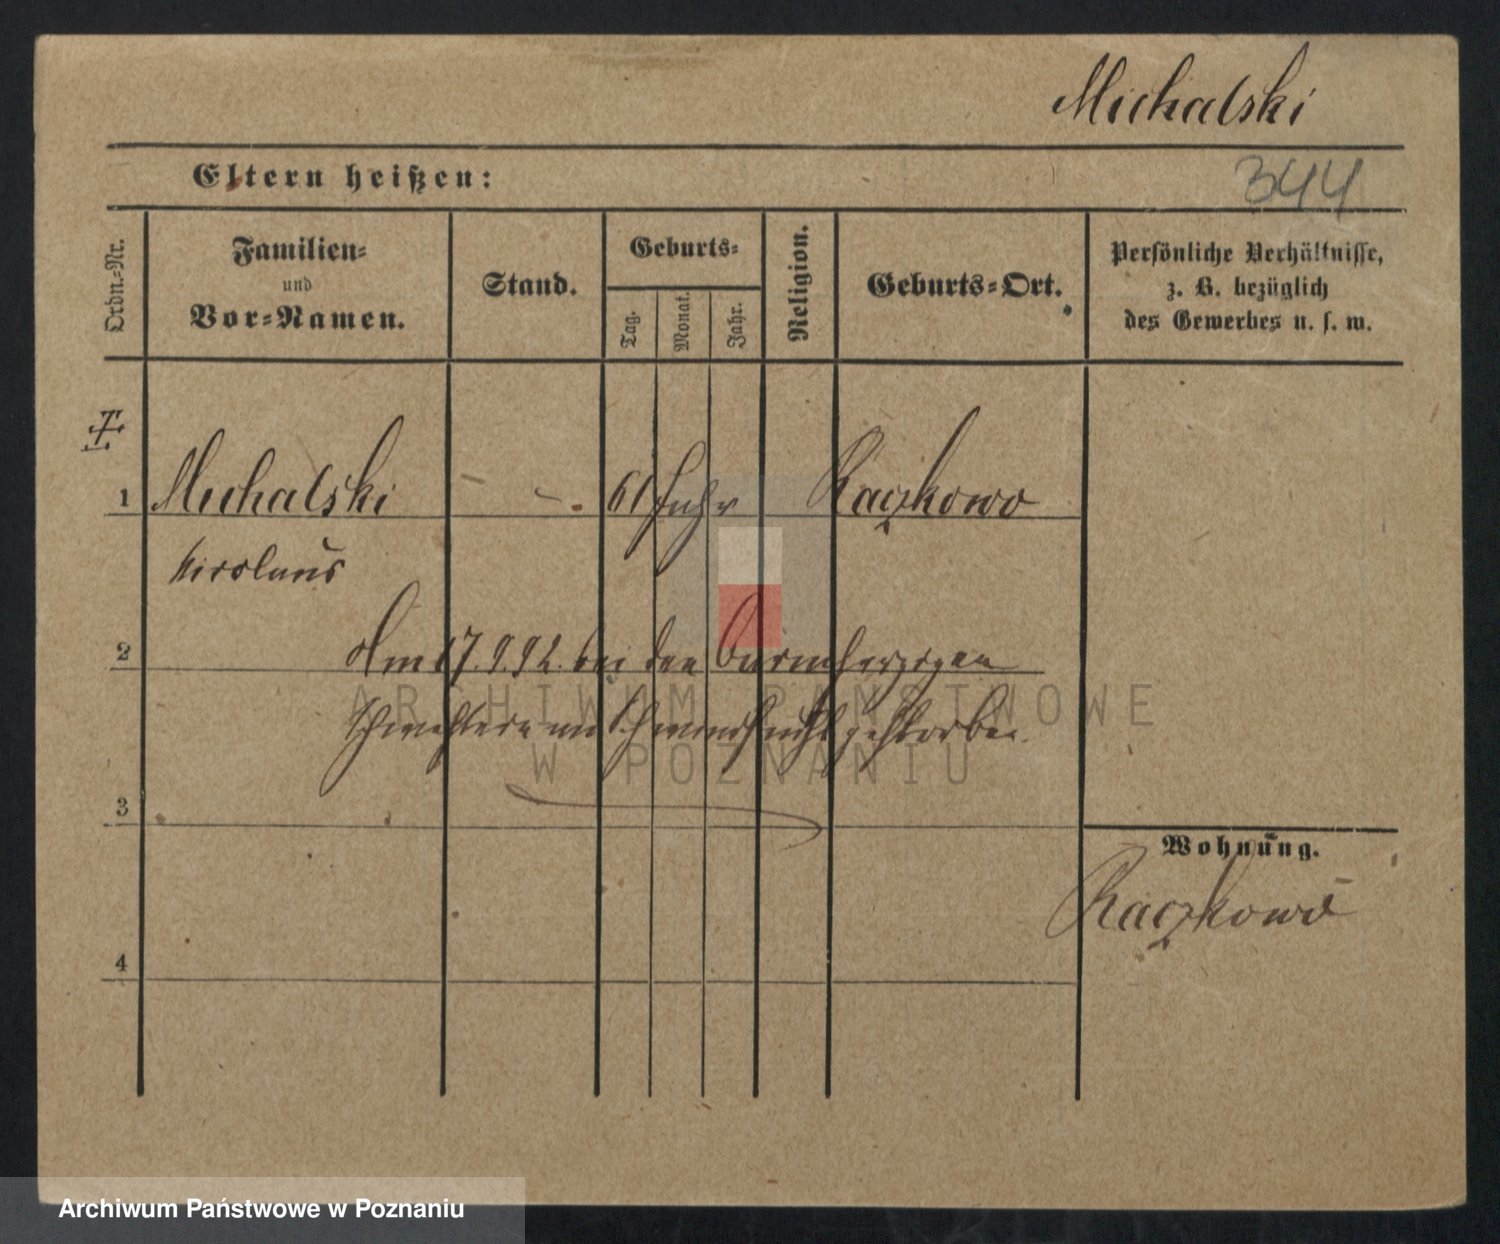 Michalski
344
Eltern heißen:
Ordn.-Nr.
Familien-
und
Vor-Namen.
Stand.
Geburts-
Tag.
Monat.
Jahr.
Religion.
Geburts-Ort.
Persönliche Verhältnisse,
z. B. bezüglich
des Gewerbes u. s. w.
1 Michalski 61 Jahr Raczkowo
Nicolaus
2 Am 17.9.92. bei den Barmherzigen
Schwestern an Schwindsucht gestorben.
ARCHIWUM PAŃSTWOWE
W POZNANIU
3
Wohnung.
Raczkowo
4
Archiwum Państwowe w Poznaniu